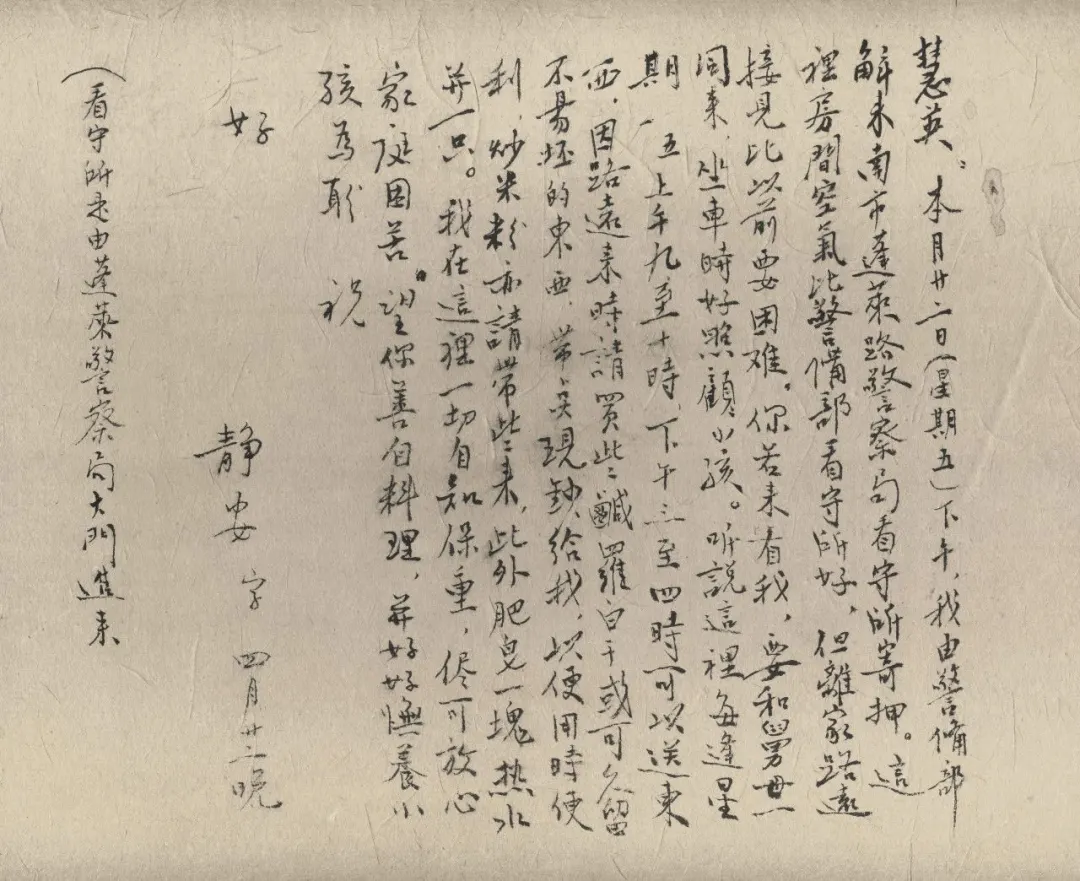 慧英：本月廿二日（星期五）下午，我由警俻部
解来南市蓬萊路警察局看守所寄押。這
裡房間空氣比警備部看守所好，但離家路遠
接見比以前要困难。你若来看我，要和舅母一
同来，坐車時好照顧小孩。听説這裡每逢星
期一、五上午九至十時，下午三至四時可以送東
西，因路遠来時請買些鹹羅白干或可久留
不易坯的東西，帶点現鈔給我，以便用時便
利，炒米粉亦請带些来，此外肥皂一塊热水
并一只。我在這裡一切自知保重，侭可放心
家庭困苦，望你善自料理，并好好憮養小
孩為盼 祝
好
静安 字 四月廿二晚
（看守所是由蓬萊警察局大門進来